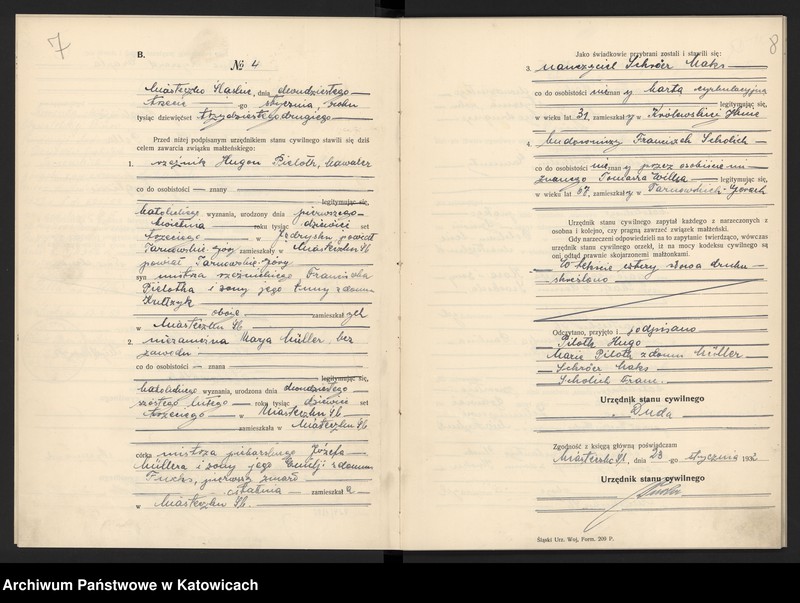 7
B.
№ 4
Miasteczko Śląskie, dnia dwudziestego
trzeciego stycznia, roku
tysiąc dziewięćset trzydziestego drugiego
Przed niżej podpisanym urzędnikiem stanu cywilnego stawili się dziś
celem zawarcia związku małżeńskiego:
1. rzeźnik Hugon Pieloth, kawaler
co do osobistości — znany
legitymując się,
katolickiego wyznania, urodzony dnia pierwszego
kwietnia roku tysiąc dziewięć set
trzeciego w Jędrysku powiat
Tarnowskie-Góry zamieszkały w Miasteczku Śl.
powiat Tarnowskie-Góry
syn mistrza rzeźnickiego Franciszka
Pielotha i żony jego Anny z domu
oboje zamieszkał ych
w Miasteczku Śl.
2. niezamężna Marja Müller, bez
zawodu
co do osobistości — znana
legitymując się,
katolickiego wyznania, urodzona dnia dwudziestego
szóstego lutego roku tysiąc dziewięć set
trzeciego w Miasteczku Śl.
zamieszkała w Miasteczku Śl.
córka mistrza piekarskiego Józefa
Müllera i żony jego Emilji z domu
Fuchs, pierwszy zmarł
ostatnia zamieszkał a
w Miasteczku Śl.
8
Jako świadkowie przybrani zostali i stawili się:
3. nauczyciel Schröer Maks
co do osobistości nieznany kartą cyrkulacyjną
legitymując się,
w wieku lat 31, zamieszkały w Królewskiej Hucie
4. budowniczy Franciszek Scholich
co do osobistości nieznany przez osobiście mi
znanego Tomasza Wilka legitymując się,
w wieku lat 37, zamieszkały w Tarnowskich-Górach
Urzędnik stanu cywilnego zapytał każdego z narzeczonych z
osobna i kolejno, czy pragną zawrzeć związek małżeński.
Gdy narzeczeni odpowiedzieli na to zapytanie twierdząco, wówczas
urzędnik stanu cywilnego orzekł, iż na mocy kodeksu cywilnego są
oni odtąd prawnie skojarzonemi małżonkami.
W tekście cztery słowa druku
skreślono
Odczytano, przyjęto i podpisano
Piloth Hugo
Marie Piloth z domu Müller
Schröer Maks
Scholich Franc.
Urzędnik stanu cywilnego
Duda
Zgodność z księgą główną poświadczam
Miasteczko Śl., dnia 23 go stycznia 1932
Urzędnik stanu cywilnego
Śląski Urz. Woj. Form. 209 P.
Archiwum Państwowe w Katowicach